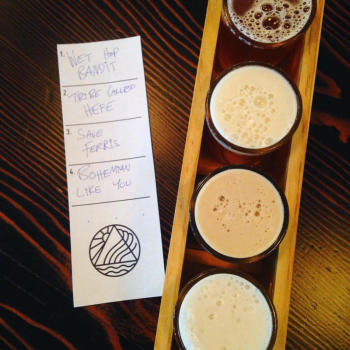 1. WET HOP
BANDIT
2. TRIBE CALLED
HEFE
3. SAVE
FERRIS
4. BOHEMIAN
LIKE YOU